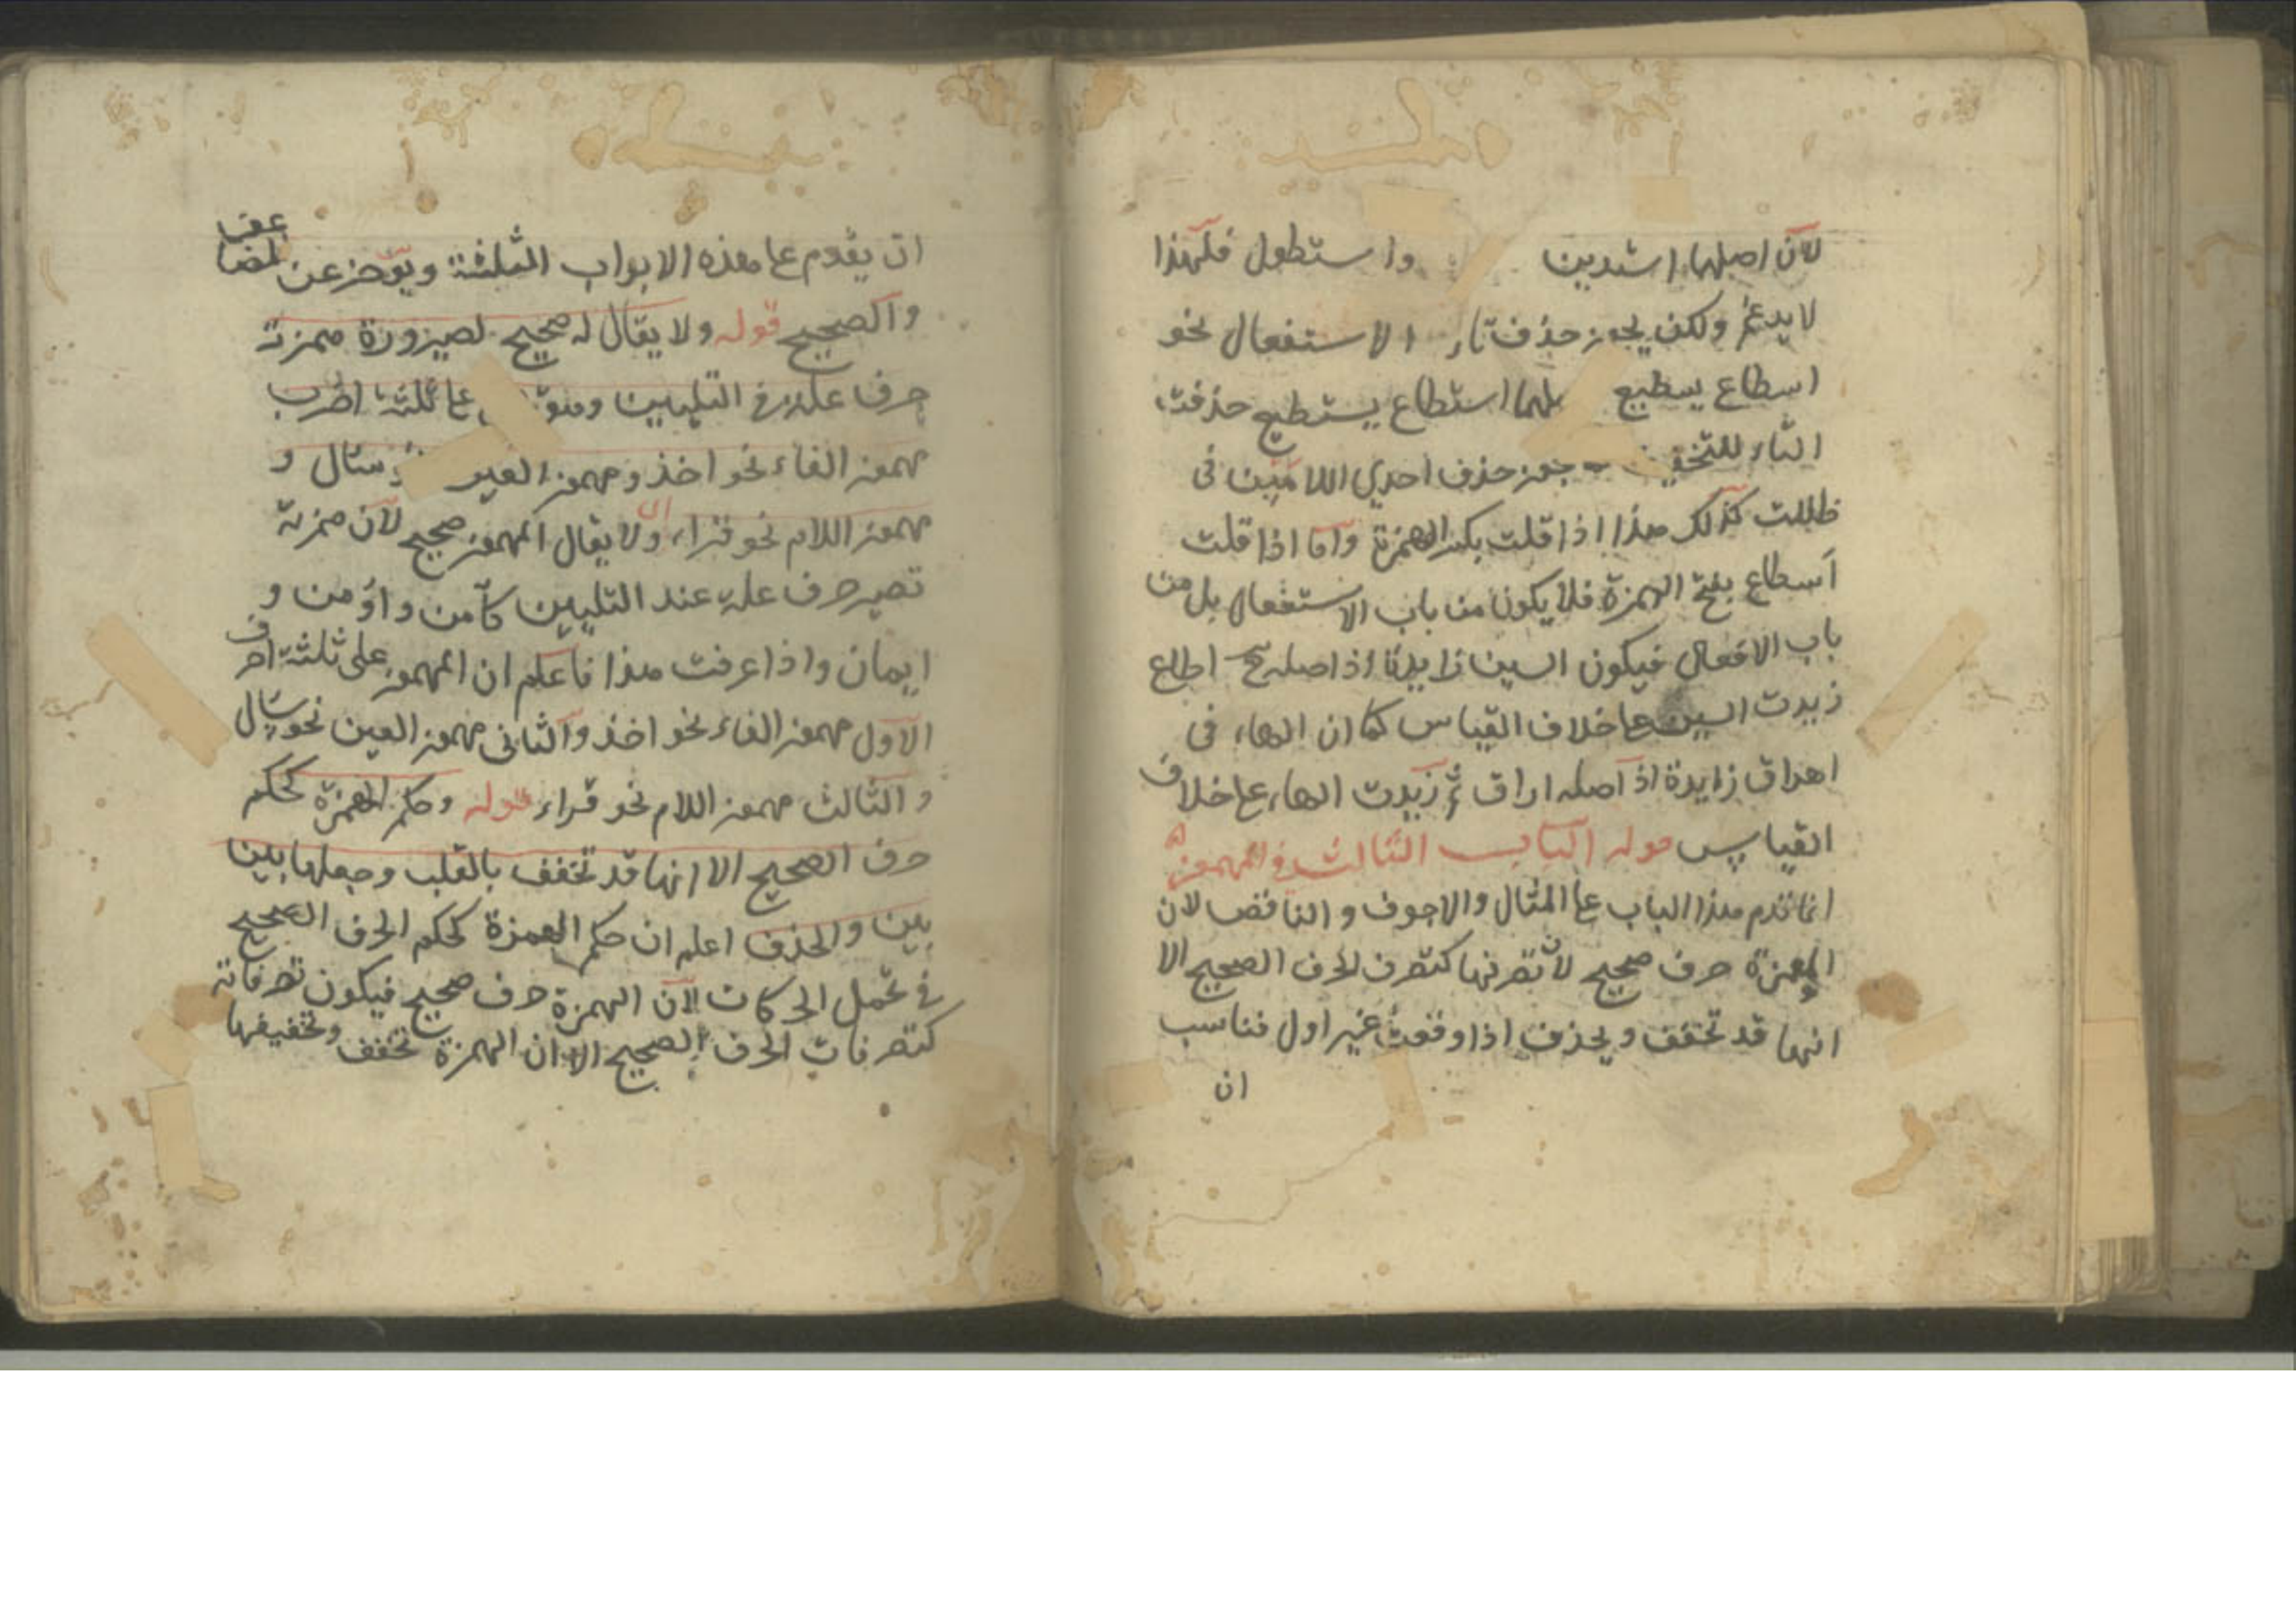 لان اصلها استدين واستطول فلهذا
لا يدغم ولكن يجوز حذف تاء الاستفعال نحو
اسطاع يسطيع استطاع يستطيع حذفت
التاء للتخفيف يجوز حذف احدي اللامين فى
ظللت كذلك هذا اذا قلت بكسر الهمزة واما اذا قلت
اسطاع بفتح الهمزة فلا يكون من باب الاستفعال بل من
باب الافعال فيكون السين زايدة اذ اصله اطاع
زيدت السين عا خلاف القياس كما ان الهاء فى
اهراق زايدة اذ اصله اراق ثم زيدت الهاء عا خلاف
القياس قوله الباب الثالث فى المهموز
انما قدم هذا الباب عا المثال والاجوف والناقص لان
الهمزة حرف صحيح لان تصرفها كتصرف الحرف الصحيح الا
انها قد تخفف ويحذف اذا وقعت غير اول فناسب
ان
ان يقدم عا هذه الابواب الثلثة ويؤخر عن المضاعف
والصحيح قوله ولا يقال له صحيح لصيرورة همزته
حرف علة فى التليين وهو عا ثلثة اضرب
مهموز الفاء نحو اخذ ومهموز العين نحو سئال و
مهموز اللام نحو قراء ولا يقال المهموز صحيح لان همزته
تصير حرف علة عند التليين كآمن واؤمن و
ايمان واذا عرفت هذا فاعلم ان المهموز على ثلثة احرف
الاول مهموز الفاء نحو اخذ والثانى مهموز العين نحو سئال
والثالث مهموز اللام نحو قراء قوله وحكم الهمزة كحكم
حرف الصحيح الا انها قد تخفف بالقلب وجعلها بين
بين والحذف اعلم ان حكم الهمزة كحكم الحرف الصحيح
فى تحمل الحركات لان الهمزة حرف صحيح فيكون تصرفاته
كتصرفات الحرف الصحيح الا ان الهمزة تخفف وتخفيفها